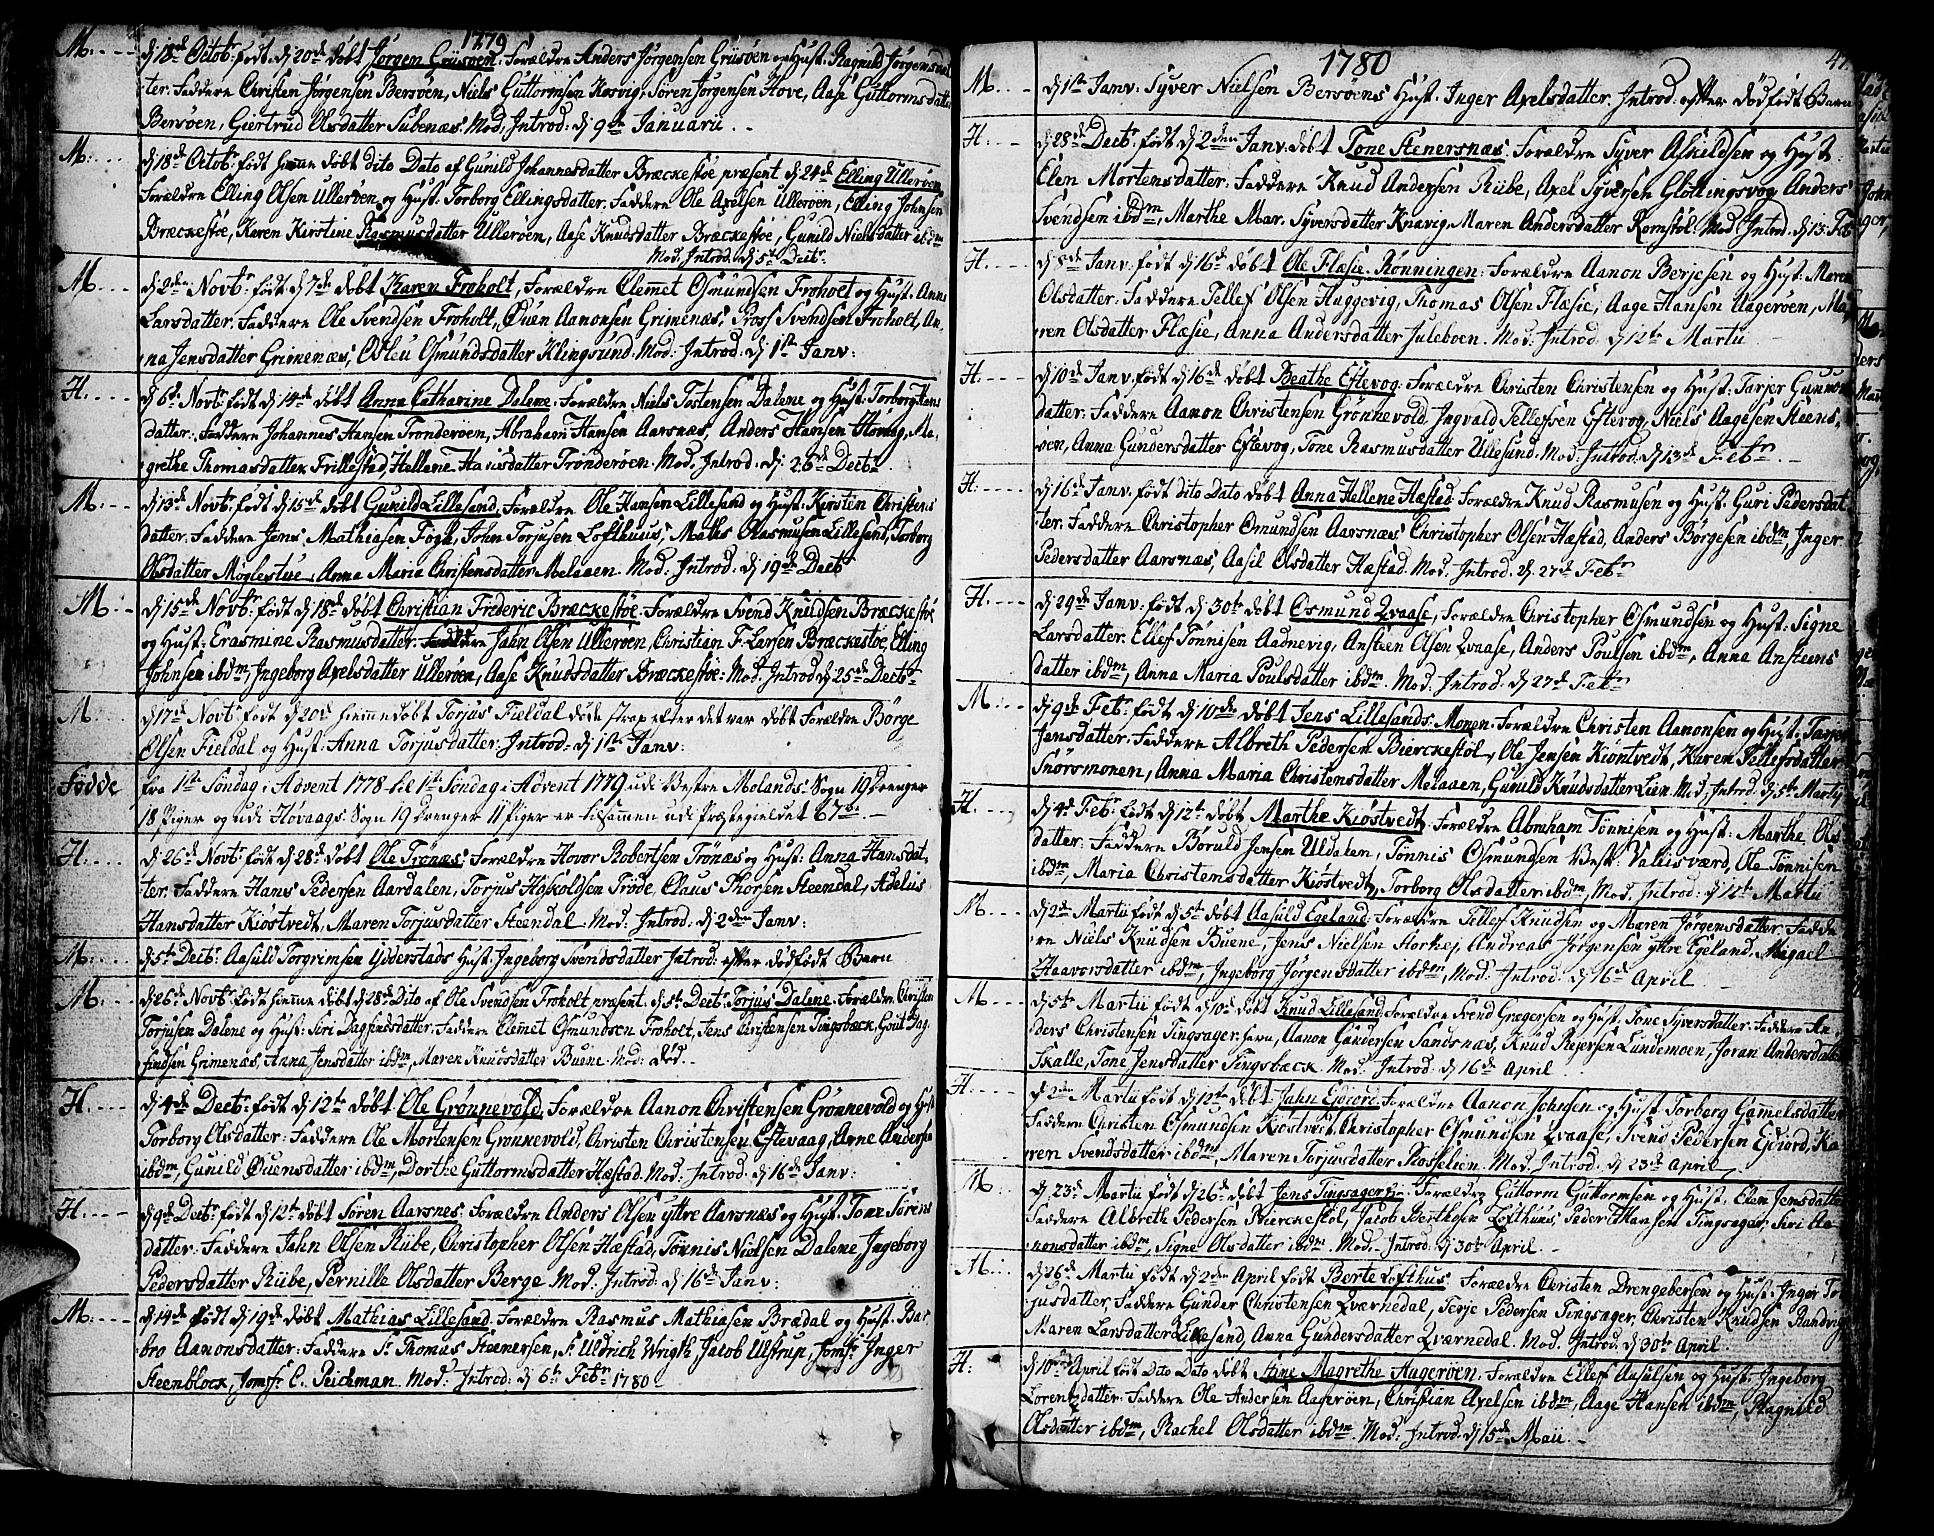 1779
M: d 18de Octobr: født d 20de døbt Jørgen Griisøen. Forældre Anders Jørgensen Griisøen og Hust: Ragnild Jørgensdat
ter. Faddere Christen Jørgensen Bersøen, Niels Guttormsen Kosvig, Søren Jørgensen Hove, Aase Guttormsdatter
Bersøen, Giertrud Olsdatter Subenæs. Mod: Introd: d 9de Januarii
M: d 18de Octobr: født hjemme døbt dito Dato af Gunild Johannesdatter Bræckestøe præsent d 24de Elling Ullerøen
Forældre Elling Olsen Ullerøen og Hust: Torborg Ellingsdatter. Faddere Ole Axelsen Ullerøen, Elling Johnsen
Bræckestøe, Karen Kirstine Rasmusdatter Ullerøen, Aase Knudsdatter Bræckestøe, Gunild Nielsdatter ibdm
Mod. Introd. d 5te Decbr.
M: d 2den Novbr: født d 7de døbt Karen Froholt, Forældre Clemet Osmundsen Froholt og Hust: Anne
Larsdatter. Faddere Ole Svendsen Froholt, Øuen Aanonsen Grimenæs, Tross Svendsen Froholt, An-
na Jensdatter Grimenæs, Osleu Osmundsdatter Klingsund. Mod: Introd: d 1ste Janv:
H: d 6te Novbr: født d 14de døbt Anna Catharine Dalene. Forældre Niels Tostensen Dalene og Hust: Torborg Hans
datter. Faddere Johannes Hansen Trønderøen, Abraham Hansen Aarsnæs, Anders Hansen Homvig, Ma-
grethe Thomasdatter Frillestad, Hellene Hansdatter Trønderøen. Mod: Introd: d: 26de Decbr.
M: d 13de Novbr: født d 15de døbt Gunild Lillesand. Forældre Ole Hansen Lillesand og Hust: Kirsten Christens
datter. Faddere Jens Mathiasen Fogh, John Torjusen Lofthuus, Maths Rasmusen Lillesand, Torborg
Olsdatter Møglestue, Anna Maria Christensdatter Melaaen. Mod: Introd: d 19de Decbr
M: d 15de Novbr: født d 18de døbt Christian Frideric Bræckestøe. Forældre Svend Knudsen Bræckestøe
og Hust: Erasmine Rasmusdatter. Faddere Jahn Olsen Ullerøen, Christian F. Larsen Bræckestøe, Elling
Johnsen ibdm, Ingeborg Axelsdatter Ullerøen, Aase Knudsdatter Bræckestøe: Mod. Introd d 25de Decbr
M. d 17de Novbr: født d 20de hjemmedøbt Torjus Fieldal døde strax efter det var døbt Forældre Børge
Olsen Fieldal og Hust: Anna Torjusdatter. Introd: d 1ste Janv:
Fødde fra 1ste Søndag i Advent 1778 til 1ste Søndag i Advent 1779 udi Vestre Molands Sogn 19 Drenger
18 Piger og udi Høvaags Sogn 19 Drenger 11 Piger er tilsammen udi Præstegieldet 67
H: d 26de Novbr: født d 28de døbt Ole Trønæs. Forældre Hovor Robertsen Trønæs og Hust: Anna Hansdat-
ter. Faddere Hans Pedersen Aardalen, Torjus Hoskoldsen Trøde, Claus Thorsen Steendal, Adelus
Hansdatter Kiøstvedt, Maren Torjusdatter Steendal. Mod: Introd: d 2den Janv:
M: d 5te Decbr: Aasuld Torgrimsen Ydderstads Hust. Ingeborg Svendsdatter Introd: efter dødfødt Barn
M: d 26de Novbr: født hjemme døbt d 28de Dito af Ole Svendsen Froholt præsent: d 5te Decbr: Torjus Dalene. Forældre Christen
Torjusen Dalene og Hust: Siri Dagfindsdatter. Faddere Clemet Osmundsen Froholt, Jens Christensen Tingsbæck, Gout Dag
findsen Grimenæs, Anna Jensdatter ibdm, Maren Knudsdatter Buene. Mod: Død.
H: d 4de Decbr: født d 12te døbt Ole Grønnevold. Forældre Aanon Christensen Grønnevold og Hust
Torborg Olsdatter: Faddere Ole Mortensen Grønnevold, Christen Christensen Eftevaag, Arne Andersen
ibdm, Gunild Øuensdatter ibdm, Dorthe Guttormsdatter Hæstad. Mod: Introd: d 16de Janv:
H: d 9de Decbr: født d 12te døbt Søren Aarsnes. Forældre Anders Olsen yttre Aarsnæs og Hust: Tone Sørens
datter. Faddere Jahn Olsen Riibe, Christopher Olsen Hæstad, Tønnis Nielsen Dalene, Ingeborg
Pedersdatter Riibe, Pernille Olsdatter Berge. Mod: Introd: d 16de Janv:
M: d 14de født d 19de døbt Mathias Lillesand. Forældre Rasmus Mathiasen Brædal og Hust: Bar-
bro Aanonsdatter. Faddere Sr. Thomas Steenersen, Sr. Uldrich Wrigth, Jacob Ulstrup, Jomfr: Inger
Steenblock, Jomfr: C. Peichman. Mod: Introd: d 6te Febr 1780
1780
M: d 1ste Janv: Syver Nielsen Bersøens Hust. Inger Axelsdatter. Introd. efter dødfødt Barn
H. d 28de Decbr: født d 2den Janv. døbt Tone Stenersnæs. Forældre Syver Askildsen og Hust.
Elen Mortensdatter. Faddere Knud Andersen Riibe, Axel Syversen Glottingsvog, Anders
Svendsen ibdm, Marthe Mar. Syversdatter Knavig, Maren Andersdatter Kornstøl. Mod. Introd. d 13 Feb
H. d 8de Janv: født d 16de døbt Ole Flæsie-Rønningen: Forældre Aanon Berjesen og Hust: Maren
Olsdatter: Faddere Tellef Olsen Huggevig, Thomas Olsen Flæsie, Aage Hansen Aagerøen, Ma-
ren Olsdatter Flæsie, Anna Andersdatter Juleboen. Mod: Introd: d 12te Martii
H. d 10de Janv: født d 16de døbt Beathe Eftevog. Forældre Christen Christensen og Hust: Tarjer Gunmon
datter. Faddere Aanon Christensen Grønnevold, Ingvald Tellefsen Eftevog, Niels Aagesen Steens-
øen, Anna Gundersdatter Eftevog, Tone Rasmusdatter Ullesund. Mod: Introd: d 13de Febr
H: d 16de Janv: født dito Dato døbt Anna Hellene Hæstad. Forældre Knud Rasmusen og Hust: Guri Pedersdat
ter. Faddere Christopher Osmundsen Aarsnæs, Christopher Olsen Hæstad, Anders Børgesen ibdm, Inger
Pedersdatter Aarsnæs, Aasil Olsdatter Hæstad. Mod. Introd. d. 27de Febr
H: d 29de Janv: født d 30te døbt Osmund Qvaase, Forældre Christopher Osmundsen og Hust: Signe
Larsdatter. Ellef Tønnisen Aadnevig, Ansteen Olsen Qvaase, Anders Poulsen ibdm, Anna Ansteens
datter ibdm, Anna Maria Poulsdatter ibdm. Mod. Introd. d 27de Febr
M: d 9de Febr: født d 10de døbt Jens Lillesands-Monen. Forældre Christen Aanonsen og Hust: Tarjer
Jensdatter. Faddere Albreth Pedersen Bierckestøl, Ole Jensen Kiøstvedt, Karen Tellefsdatter
Snørsmonen, Anna Maria Christensdatter Melaaen, Gunild Knudsdatter Lien. Mod. Introd. d 5te Martij
H. d 4de Febr: født d 12te døbt Marthe Kiøstvedt. Forældre Abraham Tønnisen og Hust: Marthe Ols
datter. Faddere Boruld Jensen Uldalen, Tønnis Osmundsen Vest: Vallisværd, Ole Tønnisen
ibdm, Maria Christensdatter Kiøstvedt, Torborg Olsdatter ibdm, Mod. Introd: d 12te Martii
M. d 2de Martii født d 5te døbt Aasuld Egeland. Forældre Tellef Knudsen og Maren Jørgensdatter. Fadde
re Niels Knudsen Buene, Jens Nielsen Storkej, Andreas Jørgensen yttre Egeland, Migael
Haavorsdatter ibdm, Ingeborg Jørgensdatter ibdm, Mod: Introd: d 16de April
M. d 5te Martii født d 10de døbt Knud Lillesand Forældre Svend Grægersen og Hust: Tone Syversdatter. Faddere An-
ders Christensen Tingsager-havn, Aanon Gundersen Sandsnæs, Knud Rejersen Lundemoen, Joran Andersdatter
Skalle, Tone Jensdatter Tingsbæck. Mod: Introd: d 16de April
H. d 2den Martii født d 12te døbt Jahn Ediord. Forældre Aanon Johnsen og Hust. Torborg Gammelsdatter
Faddere Christen Osmundsen Kiøstvedt, Christopher Osmundsen Qvaase, Svend Pedersen Ediord, Ka-
ren Svendsdatter ibdm, Maren Torjusdatter Rosselien. Mod: Introd: d 23de April
M: d. 23de Martii født d 26de døbt Jens Tingsager. Forældre Guttorm Guttormsen og Hust. Elen Jensdatter
Faddere Albreth Pedersen Bierckestøl, Jacob Berthosen Lofthuus, Peder Hansen Tingsager, Siri Aa-
nonsdatter ibdm, Signe Olsdatter ibdm. Mod. Introd. d 30te April.
M: d 26de Martii født d 2den April født Berte Lofthus. Forældre Christen Drengebersen og Hust: Inger Tor
jusdatter. Faddere Gunder Christensen Qværnedal, Terje Pedersen Tingsager, Christen Knudsen Randvig
Maren Larsdatter Lillesand, Anna Gundersdatter Qværnedal. Mod. Introd. d 30te April.
H: d 10de April født Dito Dato døbt Ane Magrethe Aagerøen. Forældre Ellef Aasulsen og Hust. Ingeborg
Lorentzdatter. Faddere Ole Andersen Aagerøen, Christian Axelsen ibdm, Aage Hansen ibdm, Ragnild
Olsdatter ibdm, Rachel Olsdatter ibdm. Mod: Introd. d 15de Maii.